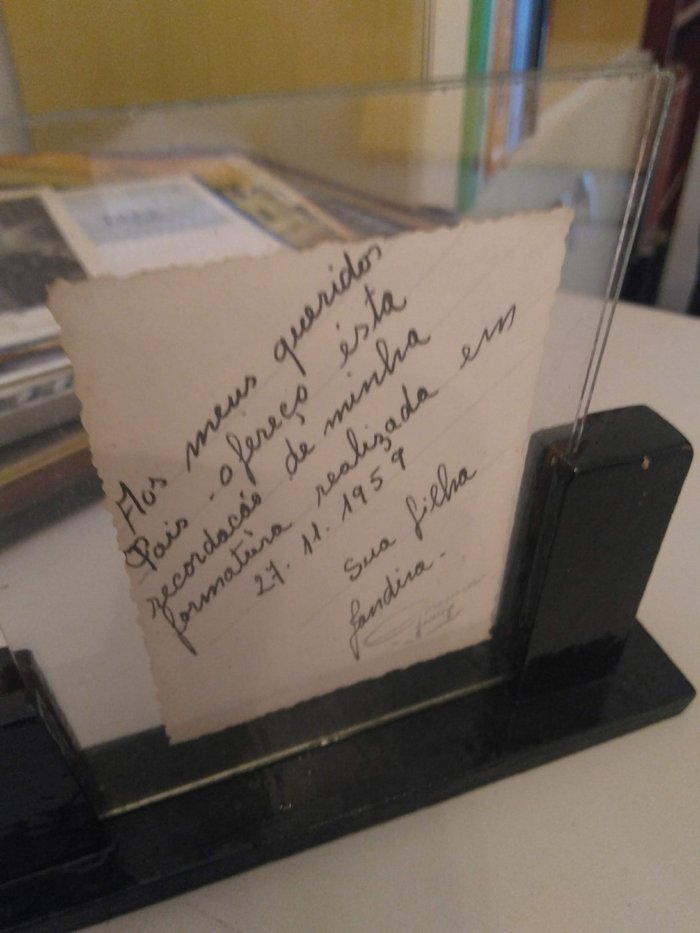 Aos meus queridos
Pais. ofereço ésta
recordacão de minha
formatúra realizada em
27. 11. 1959
Sua filha
Jandira.